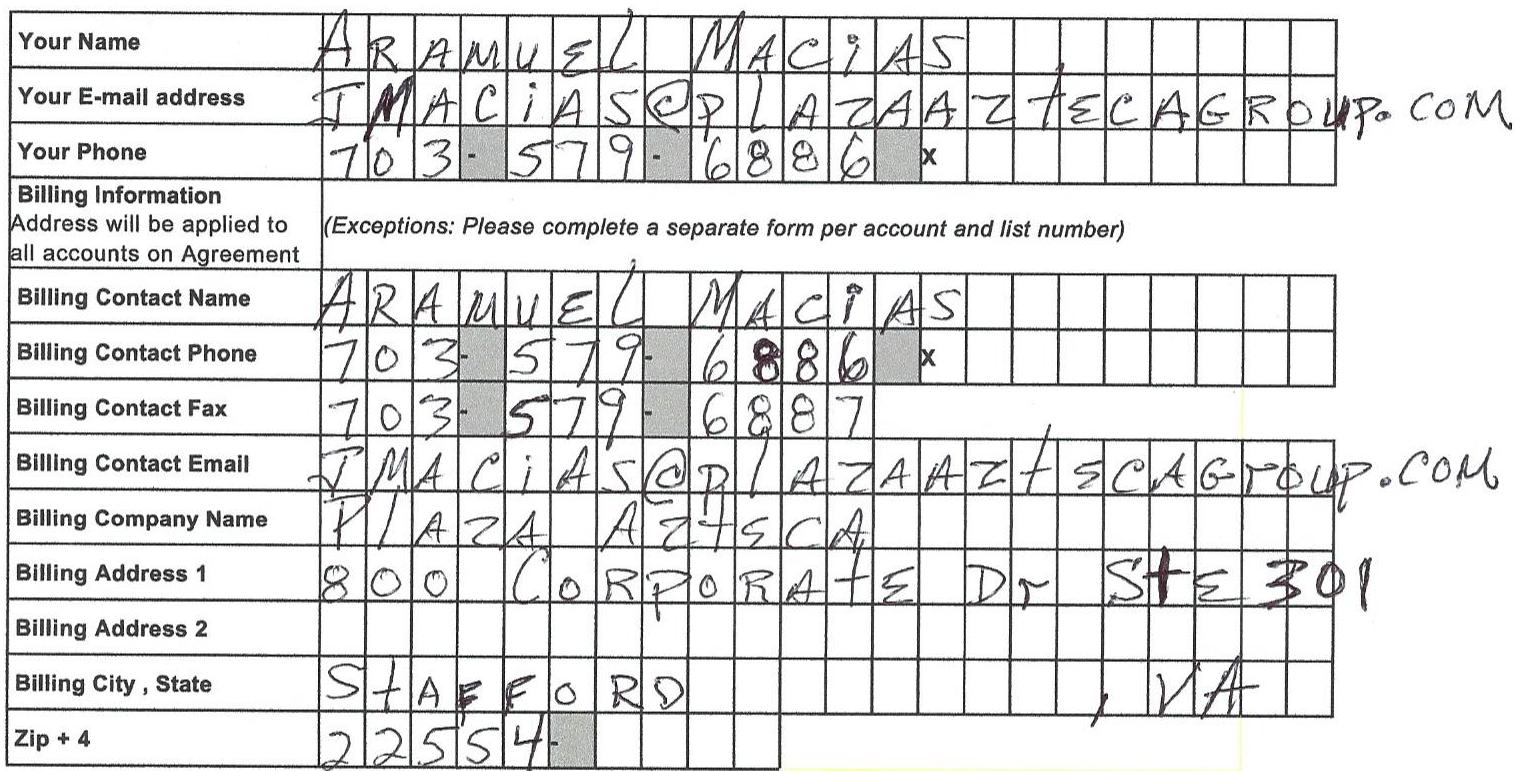 Your Name ARAMUEL MACiAS
Your E-mail address JMACiAS@PLAZAAZtECAGROUP.COM
Your Phone 703-579-6886 x
Billing Information
Address will be applied to
all accounts on Agreement
(Exceptions: Please complete a separate form per account and list number)
Billing Contact Name ARAMUEL MACiAS
Billing Contact Phone 703-579-6886 x
Billing Contact Fax 703-579-6887
Billing Contact Email JMACiAS@PlAZAAZtECAGroup.COM
Billing Company Name PlAZA AZtECA
Billing Address 1 800 CORPORAtE Dr StE 301
Billing Address 2
Billing City , State StAFFORD , VA
Zip + 4 22554-